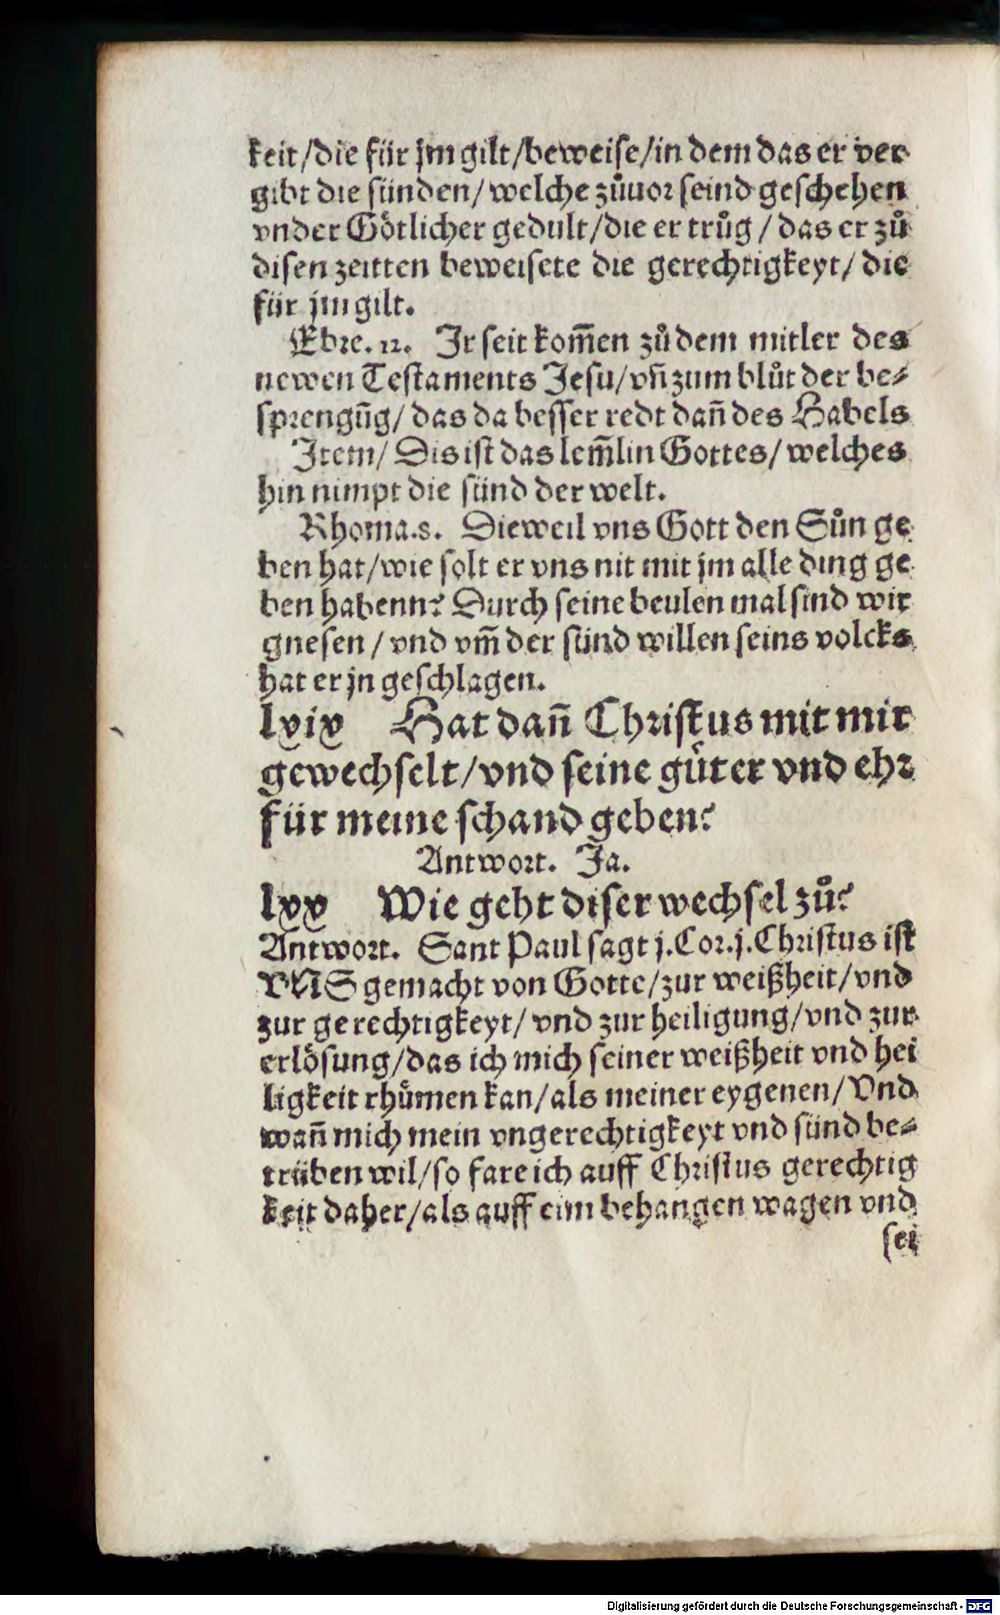 keit/die für jm gilt/beweise/in dem das er ver
gibt die sünden/welche zůuor seind geschehen
vnder Götlicher gedult/die er trůg/das er zů
disen zeitten beweisete die gerechtigkeyt/die
für jm gilt.
Ebre.12. Ir seit kom̃en zů dem mitler des
newen Testaments Jesu/vñ zum blůt der be⸗
sprengũg/das da besser redt dañ des Habels
Item/Dis ist das lem̃lin Gottes/welches
hin nimpt die sünd der welt.
Rhoma.8. Dieweil vns Gott den Sůn ge
ben hat/wie solt er vns nit mit jm alle ding ge
ben habenn? Durch seine beulen mal sind wir
gnesen/vnd vm̃ der sünd willen seins volcks
hat er jn geschlagen.
lxix Hat dañ Christus mit mir
gewechselt/vnd seine gůter vnd ehr
für meine schand geben?
Antwort. Ja.
lxx Wie geht diser wechsel zů?
Antwort. Sant Paul sagt j.Cor.j.Christus ist
VNS gemacht von Gotte/zur weißheit/vnd
zur gerechtigkeyt/vnd zur heiligung/vnd zur
erlösung/das ich mich seiner weißheit vnd hei
ligkeit rhümen kan/als meiner eygenen/Vnd
wañ mich mein vngerechtigkeyt vnd sünd be⸗
trüben wil/so fare ich auff Christus gerechtig
keit daher/als auff eim behangen wagen vnd
sei
Digitalisierung gefördert durch die Deutsche Forschungsgemeinschaft - DFG